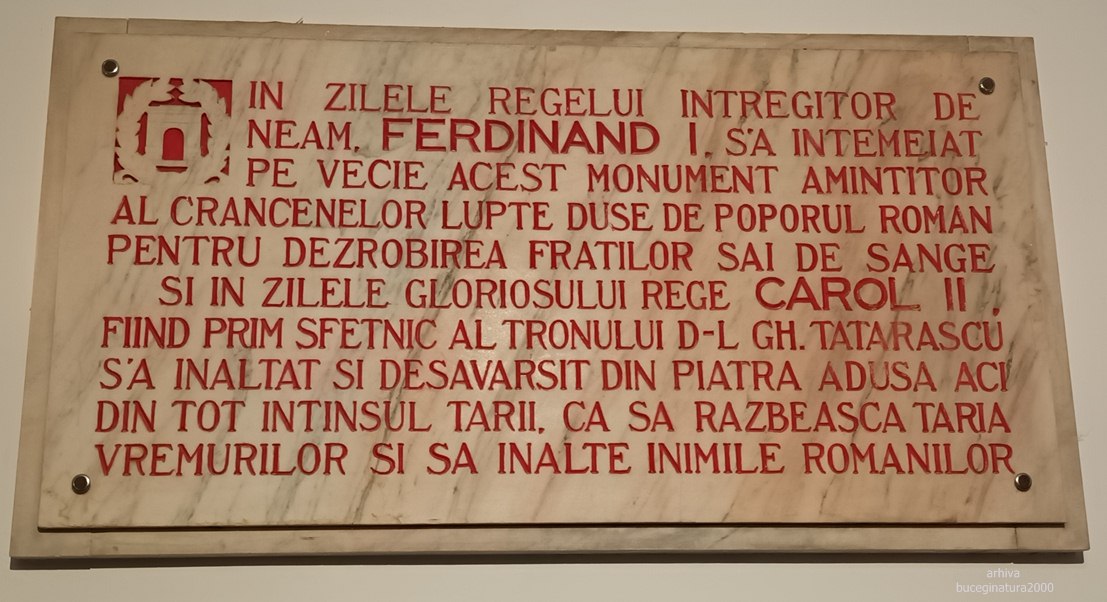 IN ZILELE REGELUI INTREGITOR DE
NEAM, FERDINAND I. S'A INTEMEIAT
PE VECIE ACEST MONUMENT AMINTITOR
AL CRANCENELOR LUPTE DUSE DE POPORUL ROMAN
PENTRU DEZROBIREA FRATILOR SAI DE SANGE
SI IN ZILELE GLORIOSULUI REGE CAROL II,
FIIND PRIM SFETNIC AL TRONULUI D-L GH. TATARASCU
S'A INALTAT SI DESAVARSIT DIN PIATRA ADUSA ACI
DIN TOT INTINSUL TARII, CA SA RAZBEASCA TARIA
VREMURILOR SI SA INALTE INIMILE ROMANILOR
arhiva
buceginatura2000